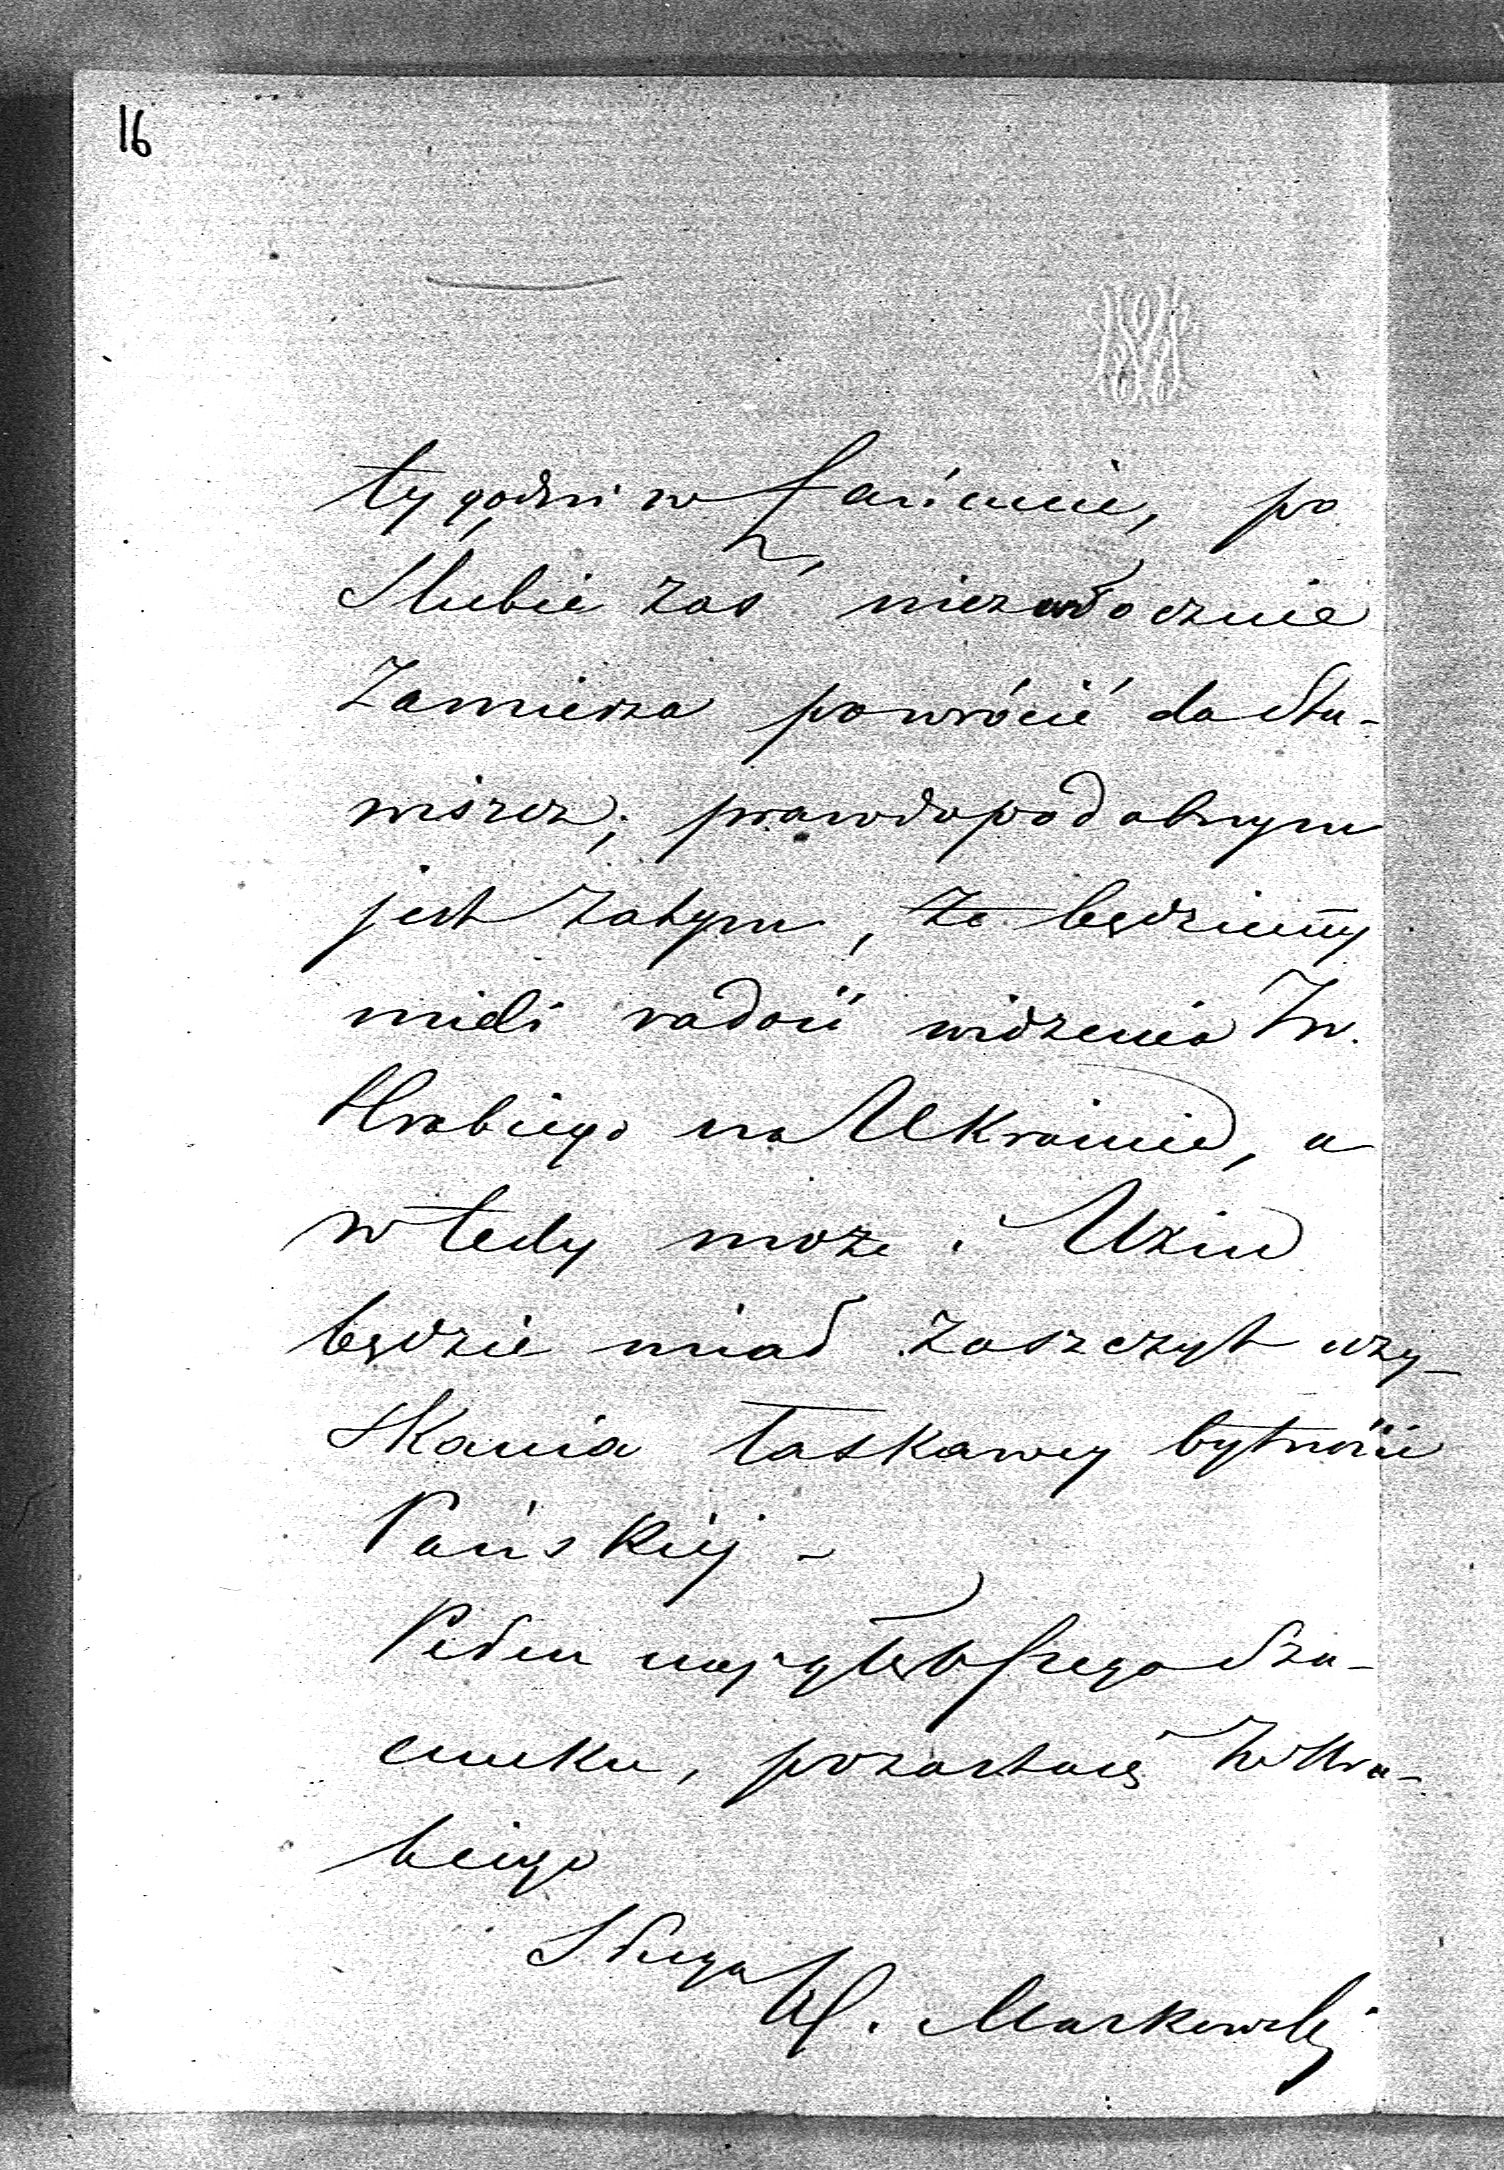 16
tygodni w Łańcucie, po
Slubie zaś niezwłocznie
Zamierza powrócić do Sta-
wiszcz; prawdopodobnym
jest zatym, że będziemy
mieli radość widzenia JW.
Hrabiego na Ukrainie, a
wtedy może i Uzin
będzie miał zaszczyt uzy-
skania łaskawej bytności
Pańskiéj -
Pełen najgłębszego Sza-
cunku, pozostaję JWHra-
biego
Sługa
W. Markowski